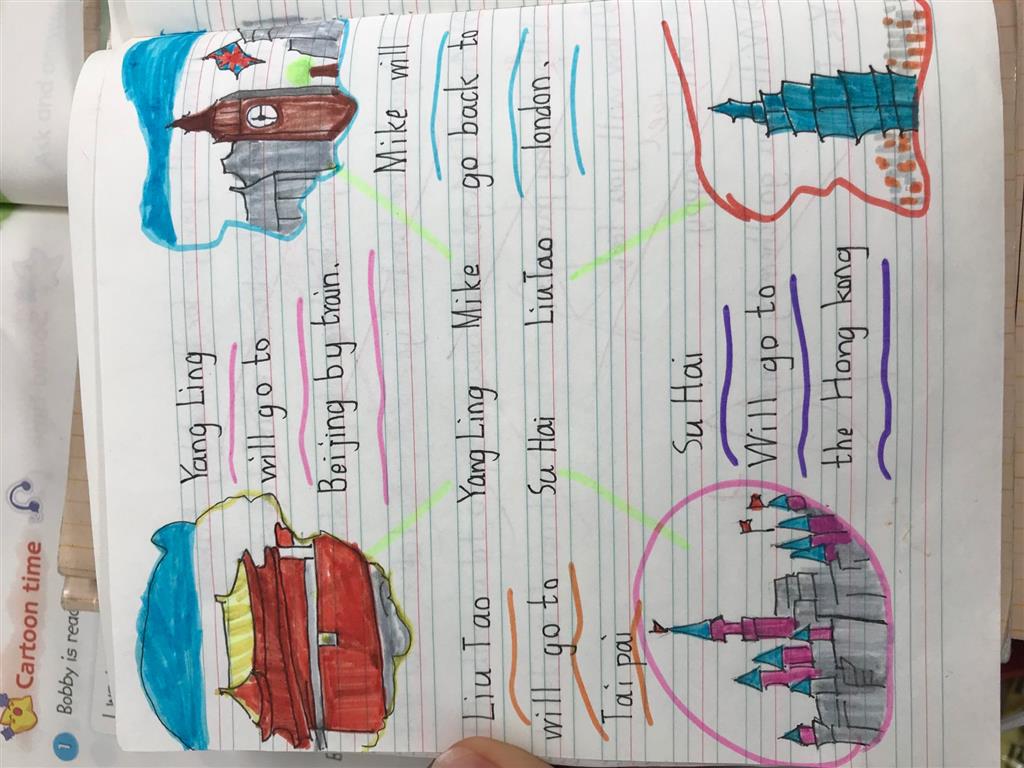 Cartoon time
1 Bobby is read
Ask and
Yang Ling
will go to
Beijing by train.
Mike will
go back to
london.
Yang Ling Mike
Su Hai Liu Tao
Liu Tao
will go to
Taipai
Su Hai
Will go to
the Hong kong